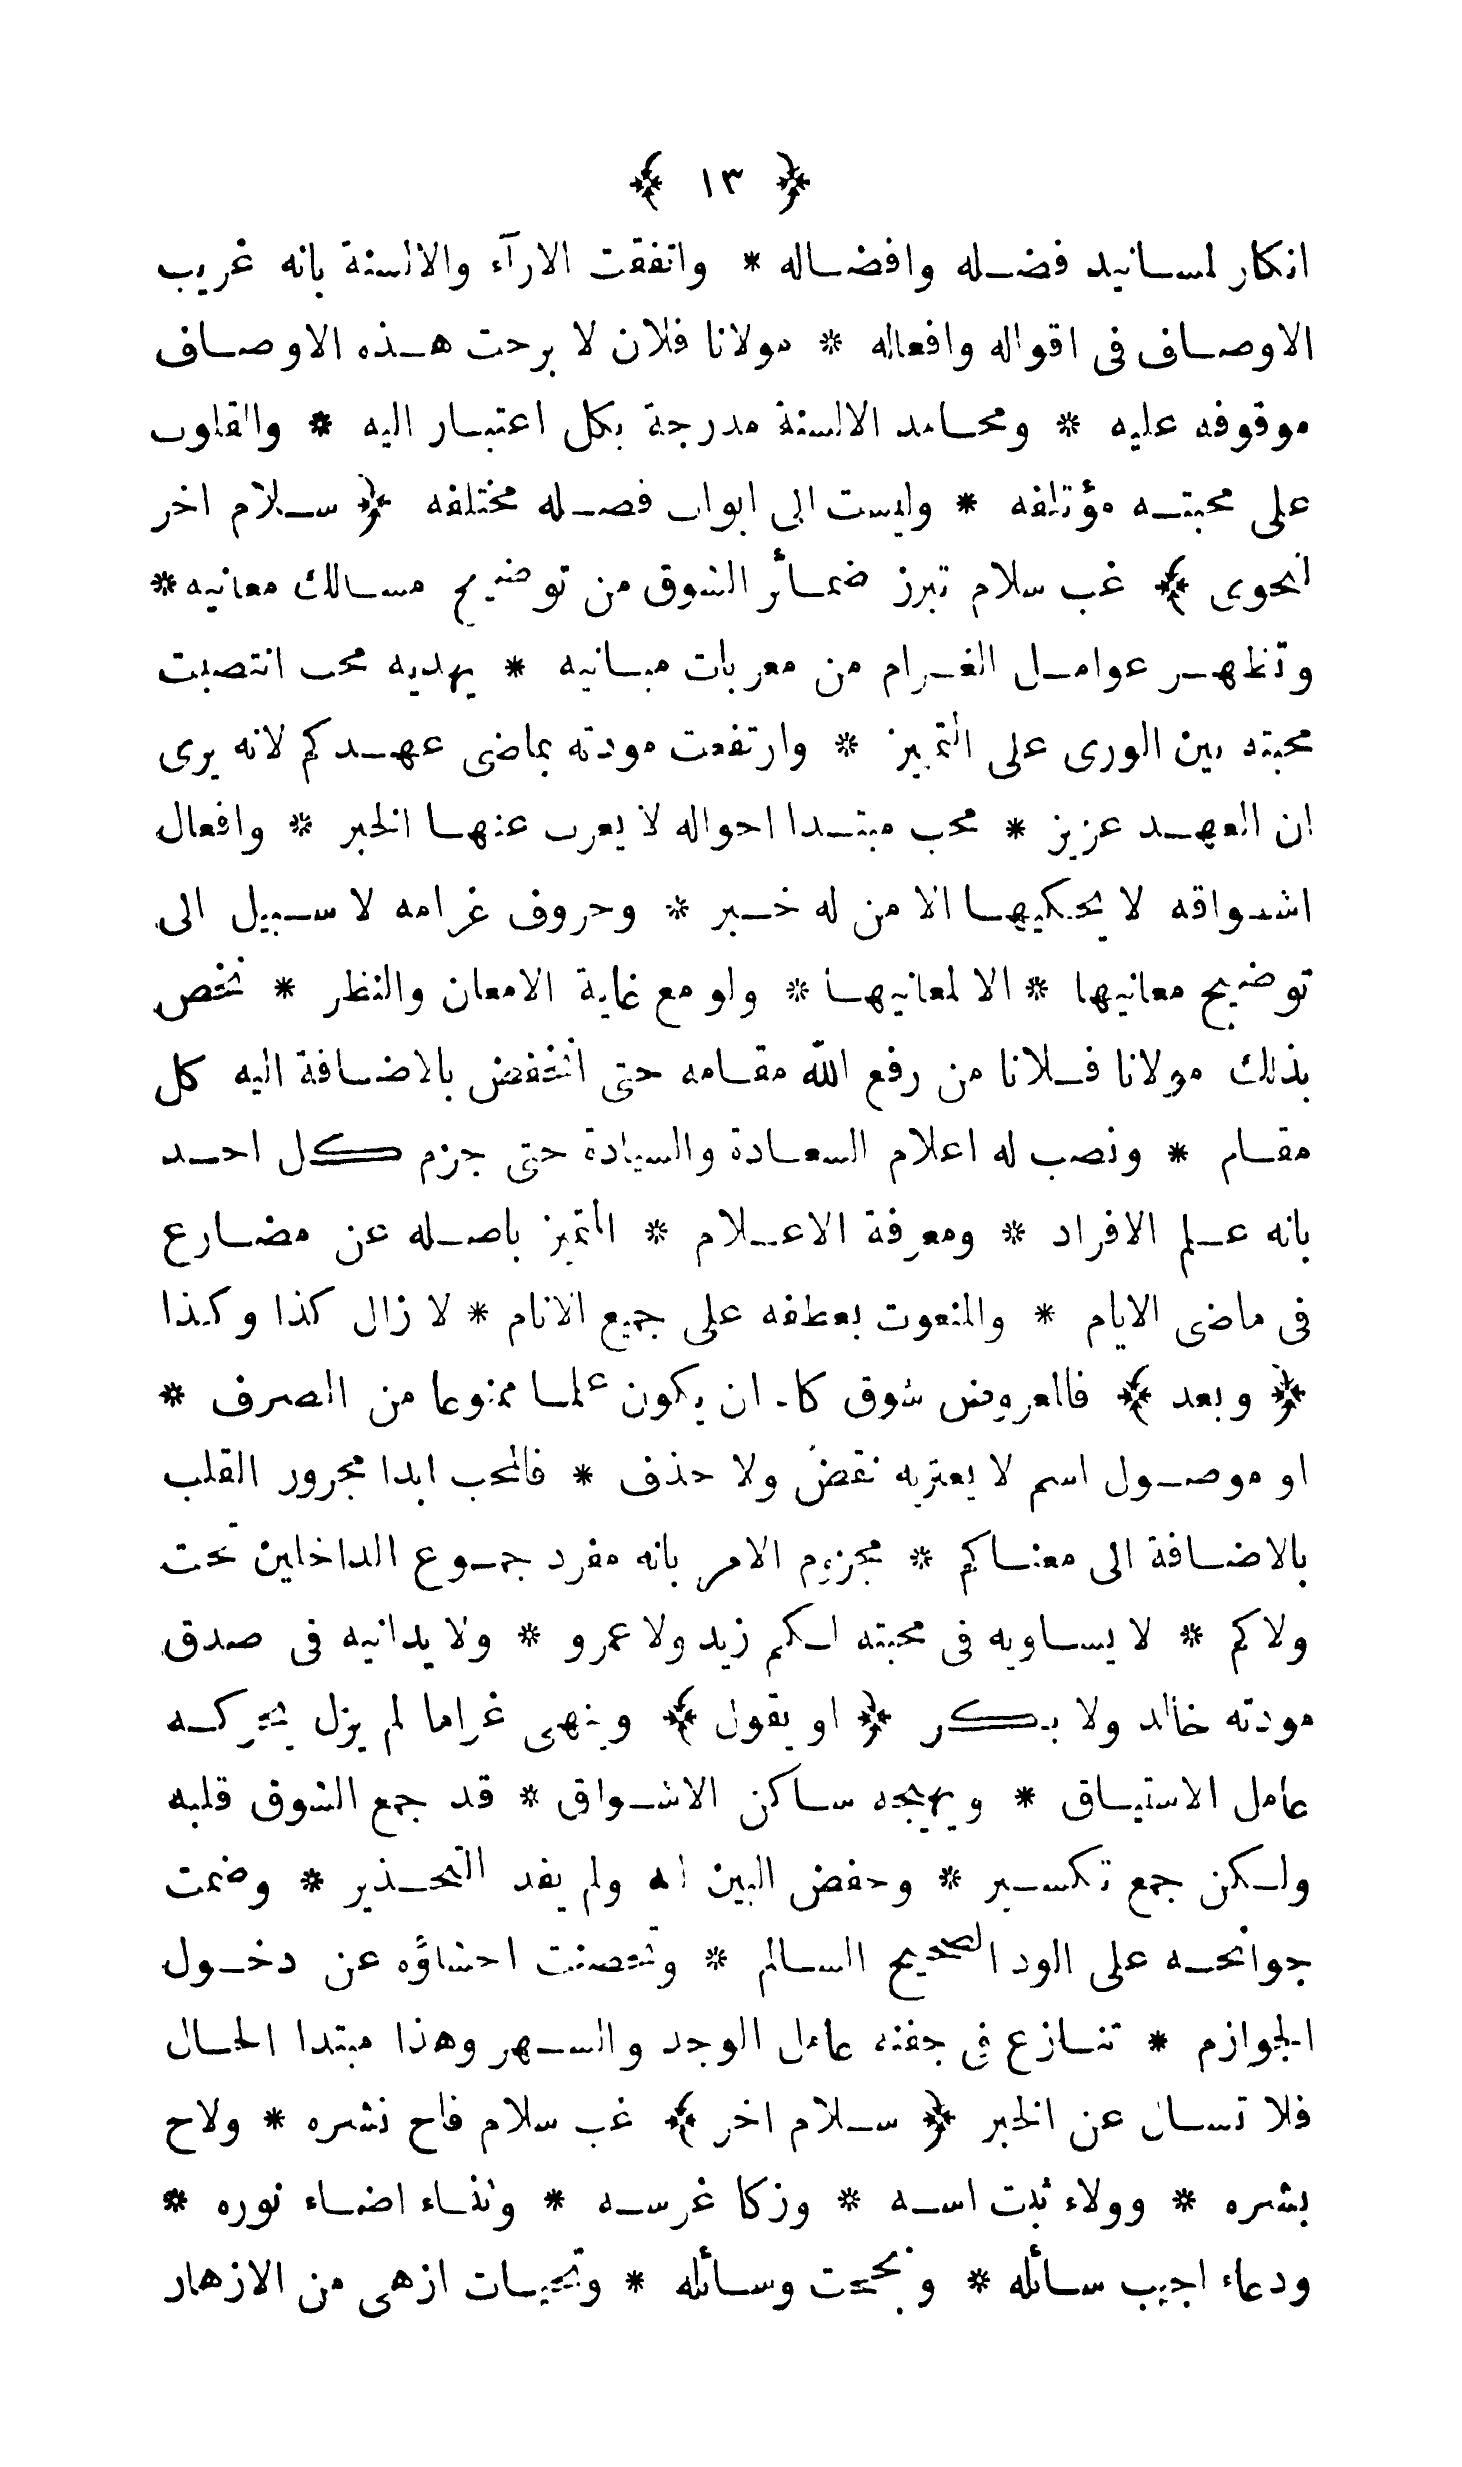 ﴿ ١٣ ﴾
انكار لمسانيد فضله وافضاله * واتفقت الارآء والالسنة بانه غريب
الاوصاف فى اقواله وافعاله * مولانا فلان لا برحت هذه الاوصاف
موقوفه عليه * ومحامد الالسنة مدرجة بكل اعتبار اليه * والقلوب
على محبته مؤتلفه * وليست الى ابواب فصله مختلفه ﴿ سلام اخر
نحوى ﴾ غب سلام تبرز ضمائر الشوق من توضيح مسالك معانيه *
وتظهر عوامل الغرام من معربات مبانيه * يهديه محب انتصبت
محبته بين الورى على التمييز * وارتفعت مودته بماضى عهدكم لانه يرى
ان العهد عزيز * محب مبتدا احواله لا يعرب عنها الخبر * وافعال
اشواقه لا يحكيها الا من له خبر * وحروف غرامه لا سبيل الى
توضيح معانيها * الا لمعانيها * ولو مع غاية الامعان والنظر * نخص
بذلك مولانا فلانا من رفع الله مقامه حتى انخفض بالاضافة اليه كل
مقام * ونصب له اعلام السعادة والسيادة حتى جزم كل احد
بانه علم الافراد * ومعرفة الاعلام * المتميز باصله عن مضارع
فى ماضى الايام * والمنعوت بعطفه على جميع الانام * لا زال كذا وكذا
﴿ وبعد ﴾ فالمعروض شوق كاد ان يكون علما ممنوعا من الصرف *
او موصول اسم لا يعتريه نقض ولا حذف * فالمحب ابدا مجرور القلب
بالاضافة الى معناكم * مجزوم الامر بانه مفرد جموع الداخلين تحت
ولاكم * لا يساويه فى محبته لكم زيد ولا عمرو * ولا يدانيه فى صدق
مودته خالد ولا بكر ﴿ او يقول ﴾ وينهى غراما لم يزل يحركه
عامل الاشتياق * ويهيجه ساكن الاشواق * قد جمع الشوق قلبه
ولكن جمع تكسير * وخفض البين له ولم يفد التحذير * وضمت
جوانحه على الود الصحيح السالم * وتحصنت احشاؤه عن دخول
الجوازم * تنازع فى جفنه عامل الوجد والسهر وهذا مبتدا الحال
فلا تسال عن الخبر ﴿ سلام اخر ﴾ غب سلام فاح نشره * ولاح
بشره * وولاء ثبت اسه * وزكا غرسه * وثناء اضاء نوره *
ودعاء اجيب سائله * ونجحت وسائله * وتحيات ازهى من الازهار